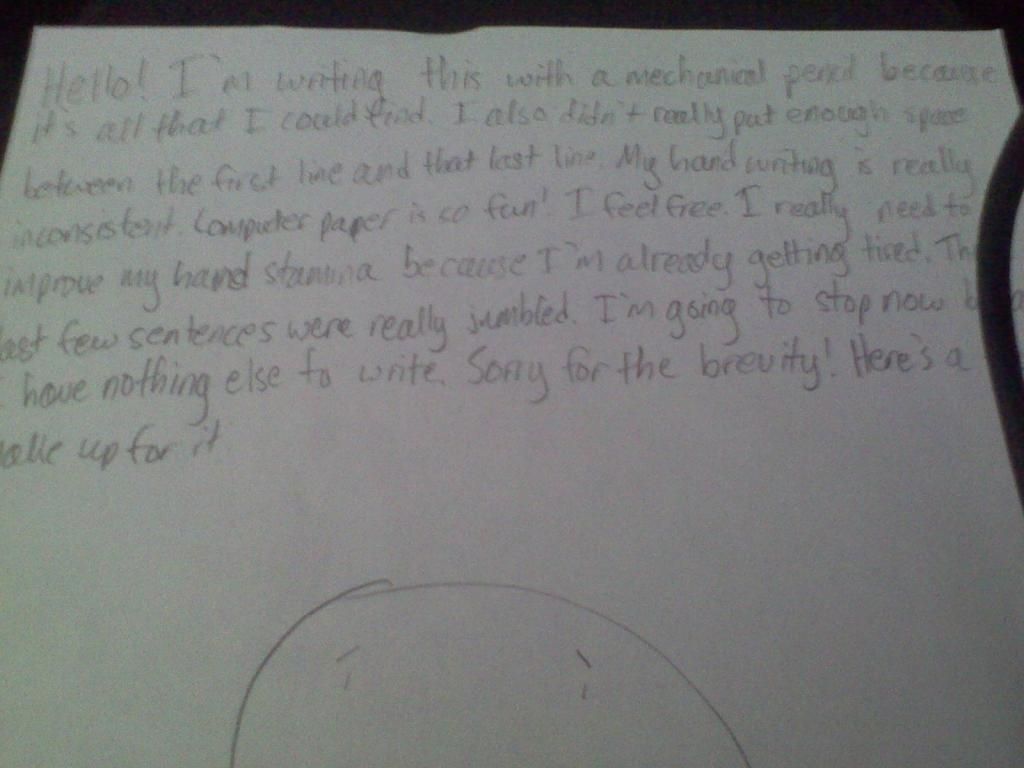 Hello! I'm writing this with a mechanical pencil because
it's all that I could find. I also didn't really put enough space
between the first line and that last line. My hand writing is really
inconsistent. Computer paper is so fun! I feel free. I really need to
improve my hand stamina because I'm already getting tired.
last few sentences were really jumbled. I'm going to stop now
I have nothing else to write. Sorry for the brevity! Here's a
up for it